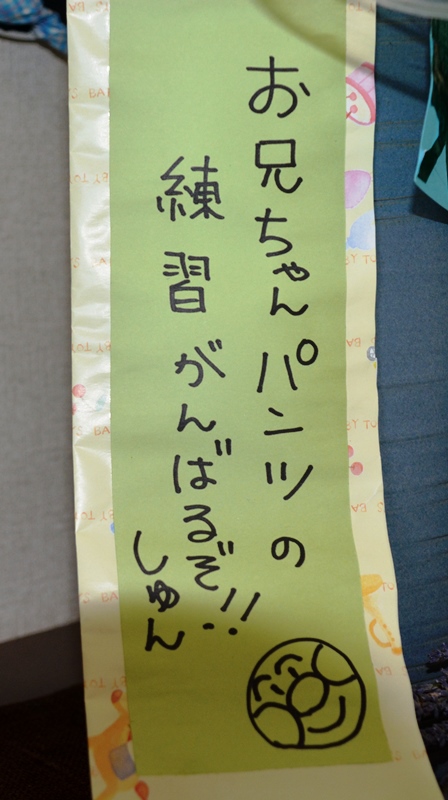 お兄ちゃんパンツの
練習がんばるぞ!!
しゅん